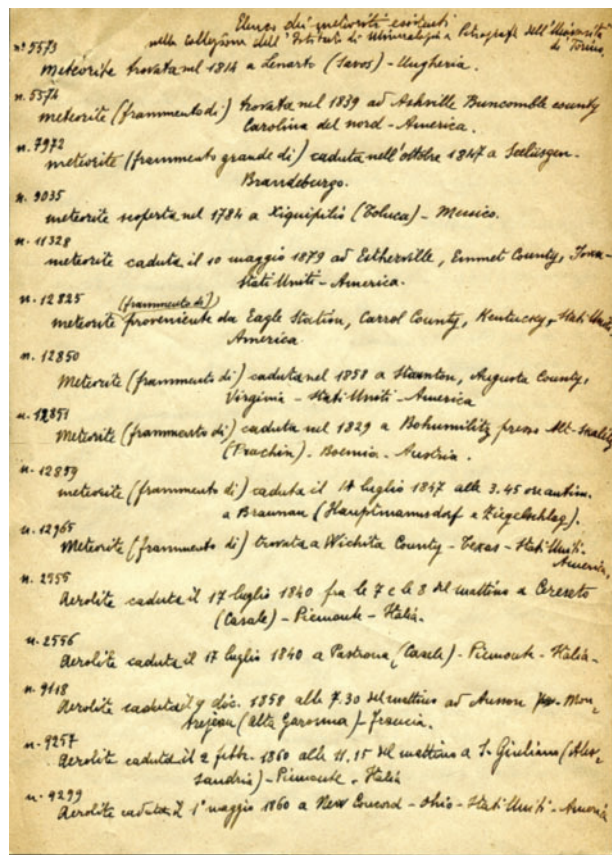 Elenco dei meteoriti esistenti
nella collezione dell'Istituto di Mineralogia e Petrografia dell'Università
di Torino
n° 5573
Meteorite trovata nel 1814 a Lenarto (Saros) - Ungheria.
n. 5574
meteorite (frammento di) trovata nel 1839 ad Ashville Buncomble county
Carolina del nord - America.
n. 7972
meteorite (frammento grande di) caduta nell'ottobre 1847 a Seeläsgen -
Brandeburgo.
n. 9035
meteorite scoperta nel 1784 a Xiquipilis (Toluca) - Messico.
n. 11328
meteorite caduta il 10 maggio 1879 ad Estherville, Emmet County, Iowa -
Stati Uniti - America.
n. 12825
(frammento di)
meteorite proveniente da Eagle Station, Carrol County, Kentucky, Stati Uniti,
America
n. 12850
Meteorite (frammento di) caduta nel 1858 a Staunton, Augusta County,
Virginia - Stati Uniti - America
n. 12851
Meteorite (frammento di) caduta nel 1829 a Bohumilitz presso Alt-Skalitz
(Prachin) - Boemia - Austria.
n. 12859
meteorite (frammento di) caduta il 14 luglio 1847 alle 3.45 ore antim.
a Braunau (Hauptmannsdorf e Ziegelschlag).
n. 12965
Meteorite (frammento di) trovata a Wichita County - Texas - Stati Uniti -
America.
n. 2555
Aerolite caduta il 17 luglio 1840 fra le 7 e le 8 del mattino a Cereseto
(Casale) - Piemonte - Italia.
n. 2556
Aerolite caduta il 17 luglio 1840 a Pastrona (Casale) - Piemonte - Italia -
n. 9118
Aerolite caduta il 9 dic. 1858 alle 7.30 del mattino ad Ausson Mon-
trejeau (alta Garonna) - Francia.
n. 9257
Aerolite caduta il 2 febbr. 1860 alle 11.15 del mattino a S. Giuliano (Ales-
sandria) - Piemonte - Italia
n. 9299
Aerolite caduta il 1° maggio 1860 a New Concord - Ohio - Stati Uniti - America